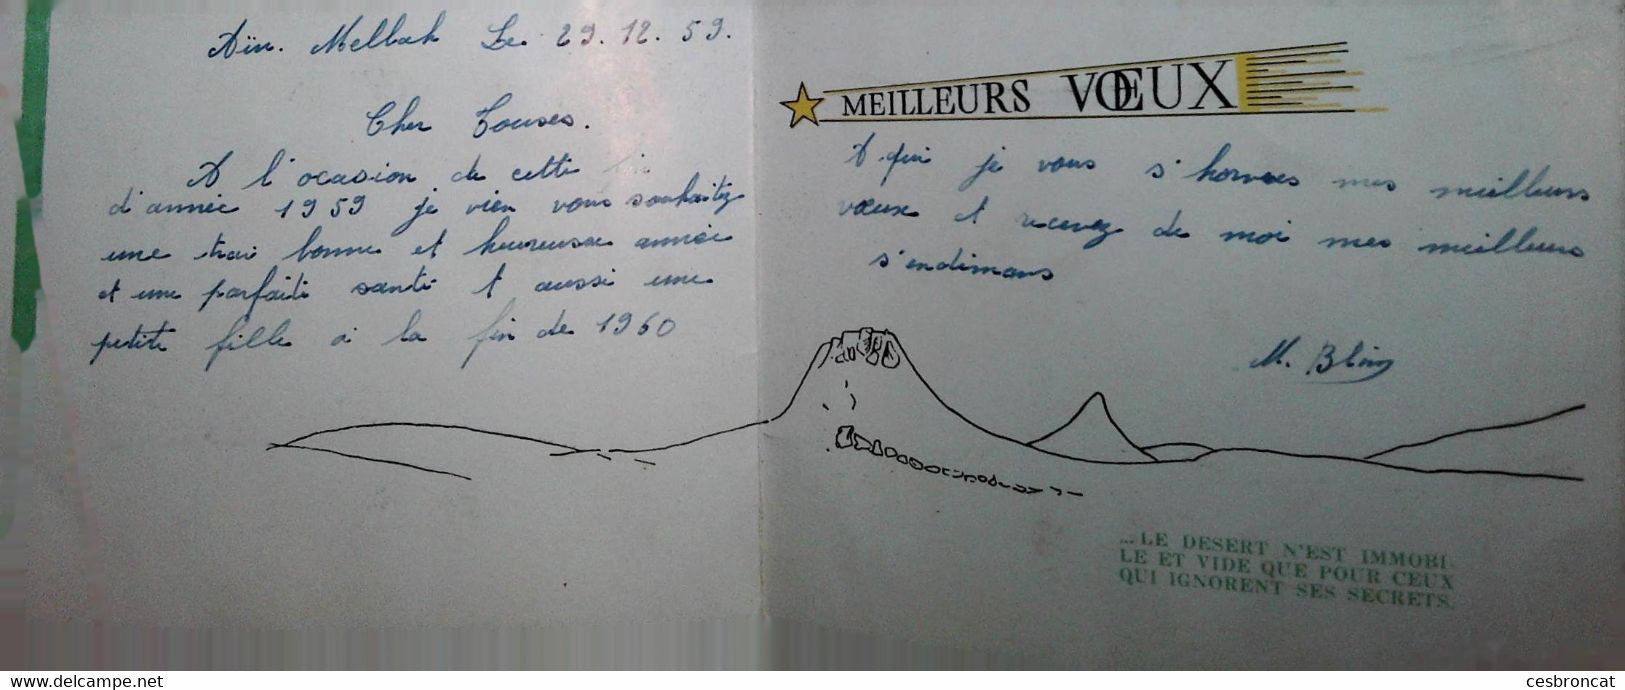 Aïn. Mellah Le 29.12.59.
Cher Touses.
A l'ocasion de cette fin
d'année 1959 je vien vous souhaitez
une trai bonne et heureusse année
et une parfaite santé et aussi une
petite fille a la fin de 1960
MEILLEURS VŒUX
A qui je vous s' mes meilleurs
vœux et recevez de moi mes meilleurs
s'endimans
M. Blin
...LE DESERT N'EST IMMOBI-
LE ET VIDE QUE POUR CEUX
QUI IGNORENT SES SECRETS.
www.delcampe.net
cesbroncat